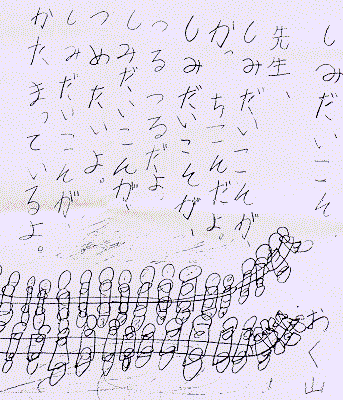 しみだいこん
先生、
しみだいこんが、
がっちこんだよ。
しみだいこそが、
つるつるだよ
しみだいこんが、
つめたいよ。
しみだいこんが、
かたまっているよ。
おく山